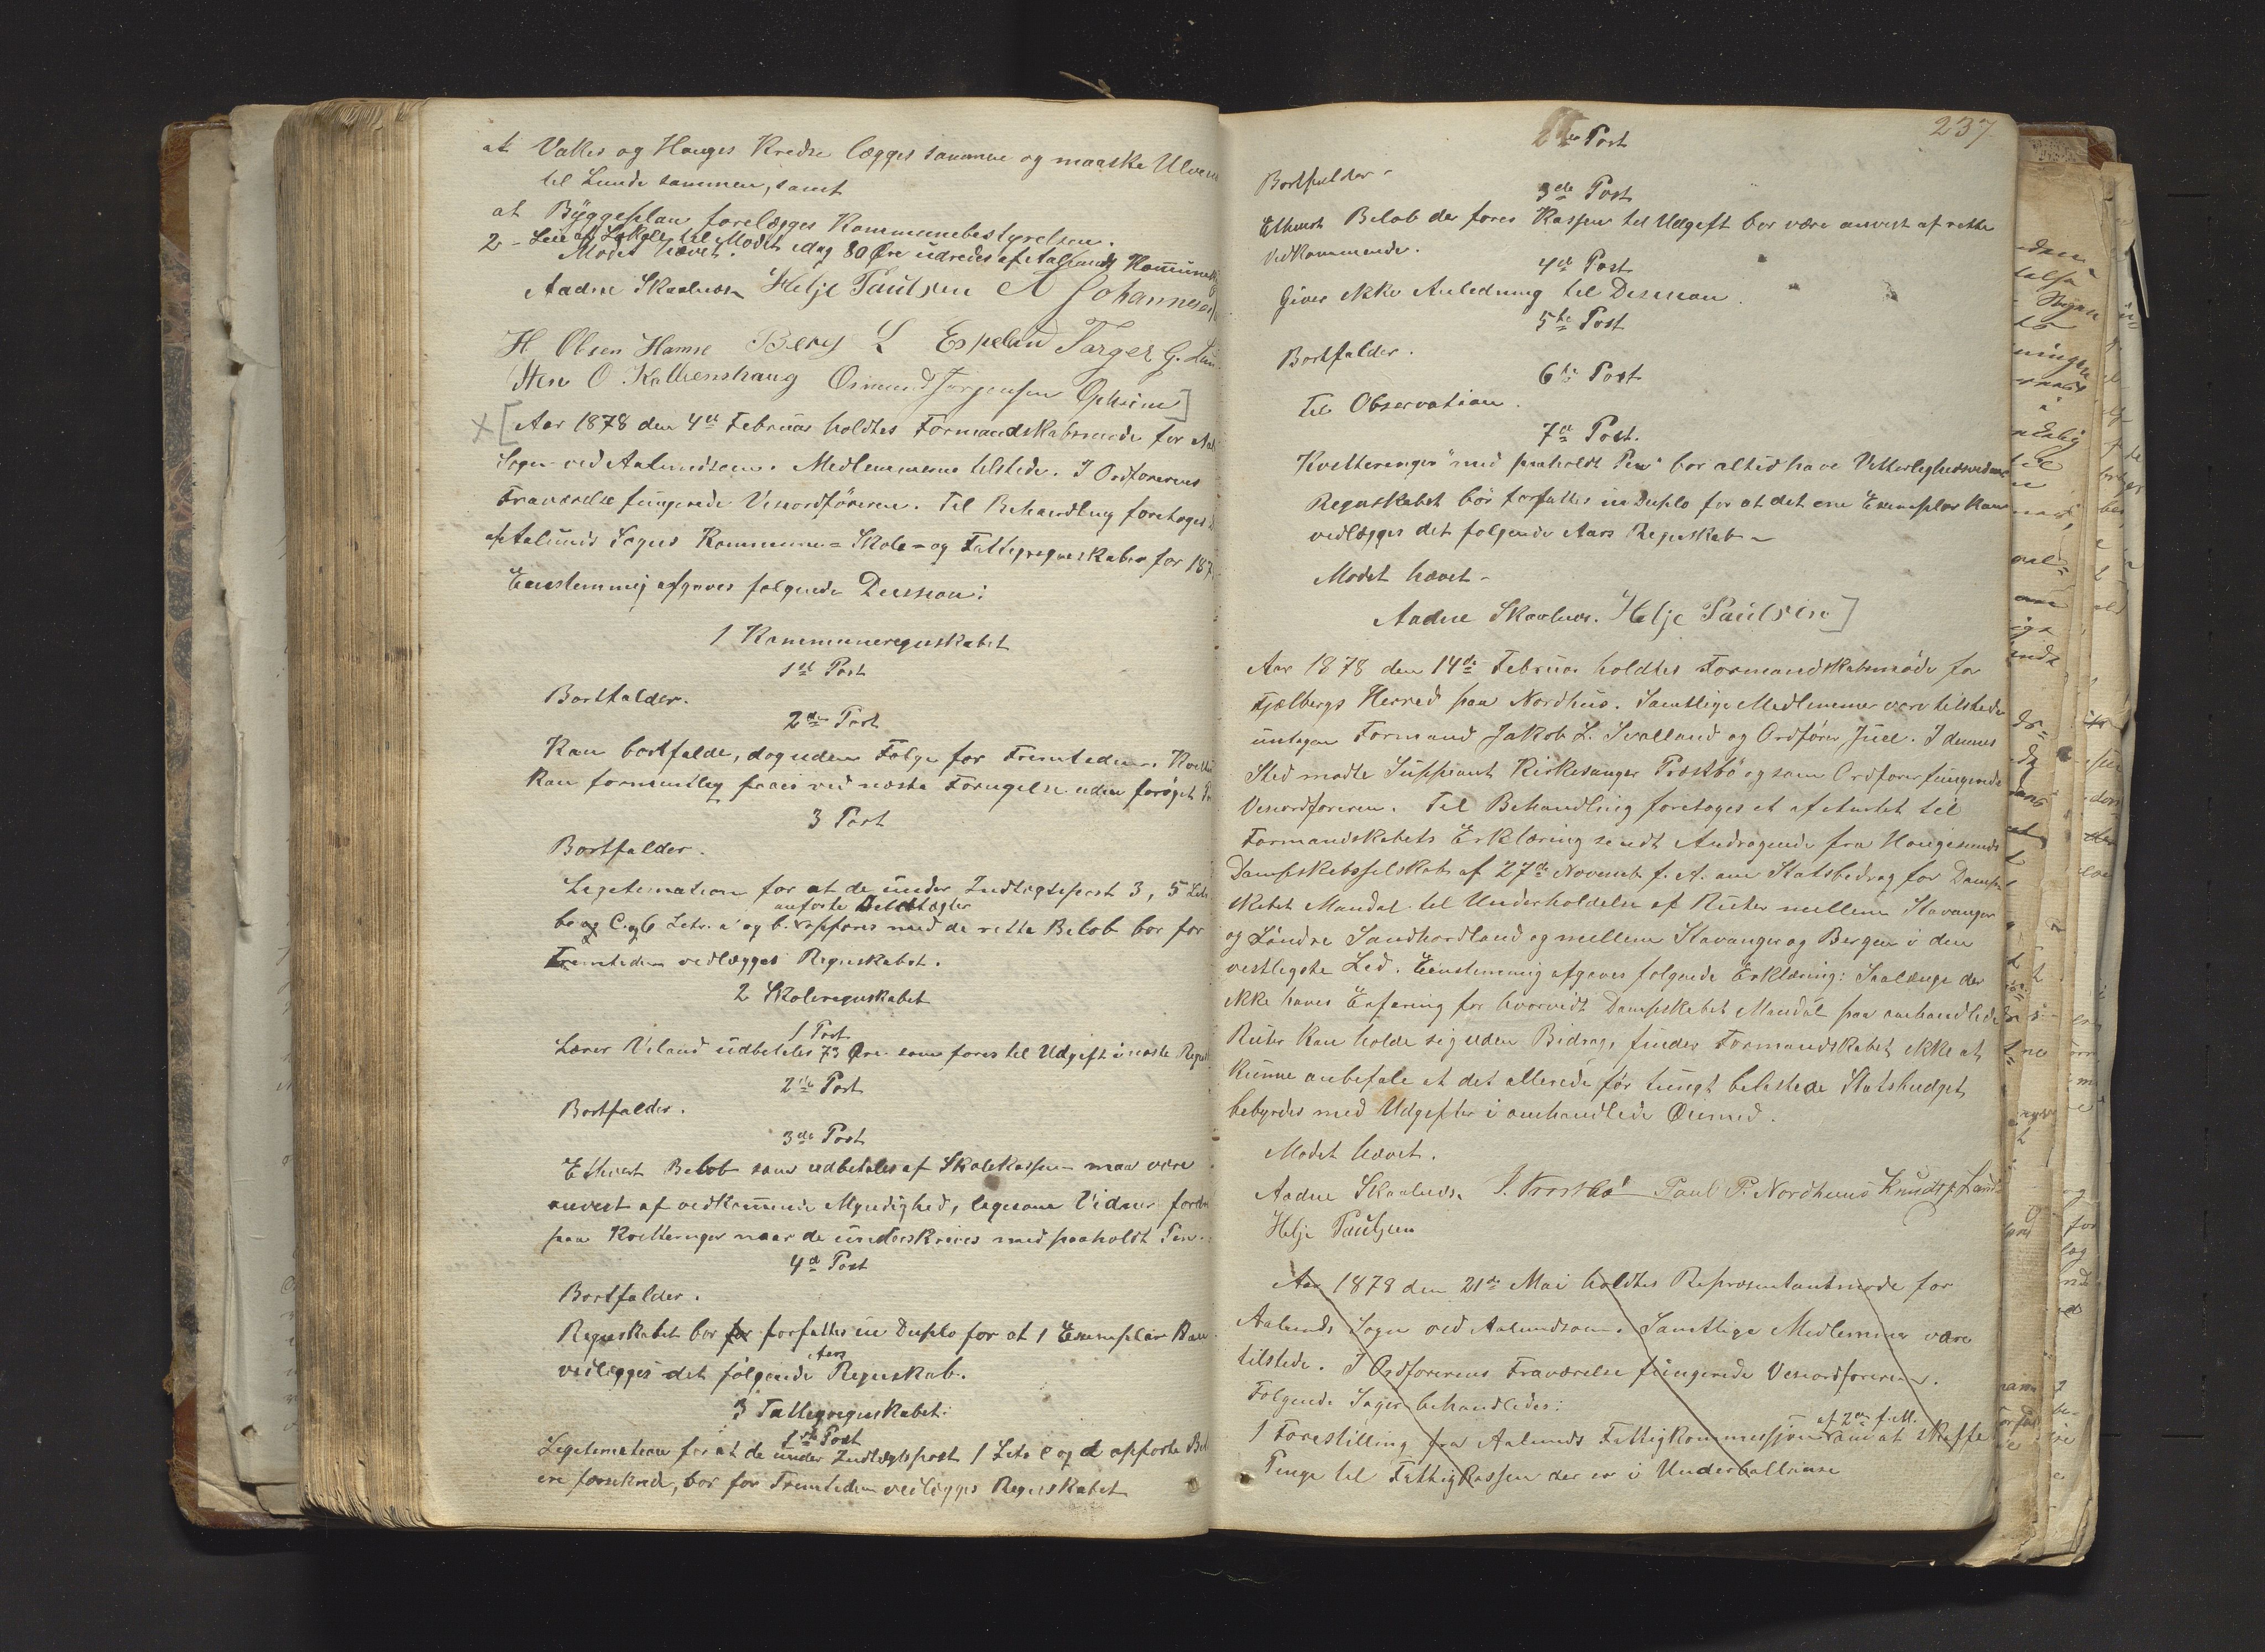 at Valles og Houges Kredse lægges sammen og maaske Ulven
til Lunde sammen, samt
at Byggeplan forelægges Kommunebestyrelsen.
2 - Leie af Lokale til Mødet idag 80 Øre udredes af Aalunds Kommunek
Mødet hævet.
Aadne Skaaluren Helje Paulsen A Johannesen
H Olsen Hamre Berj L Espeland Targer G. Lun
Sten O Kaltvenshaug Osmund Jørgensen Opheim]
[Aar 1878 den 4de Februar holdtes Formandskabsmøde for Aal
Sogn ved Aalundsøen. Medlemmerne tilstede. I Ordførerens
Fraværelse fungerede Viseordføreren. Til Behandling foretoges D
af Aalunds Sogns Kommune= Skole- og Fattigregnskaber for 187
Eenstemmig afgaves følgende Desision:
1 Kommuneregnskabet
1ste Post
Bortfalder.
2den Post
Kan bortfalde, dog uden Følge for Fremtiden. Kvitt
kan formentlig faaes ved næste Fornyelse uden forøget
3 Post
Bortfalder.
Legitimation for at de under Indtægtspost 3, 5 Litr
anførte Indtægter
b og C. og 6 Litr. a og b. opføres med de rette Beløb bør for
Fremtiden vedlægges Regnskabet.
2 Skoleregnskabet
1 Post
Lærer Viland udbetales 73 Øre som føres til Udgift i næste Regn
2den Post
Bortfalder.
3die Post
Ethvert Beløb som udbetales af Skolekassen maa være
anvist af vedkommende Myndighed, ligesom Vidner fordr
paa Kvitteringer naar de underskrives med paaholdt Pen.
4de Post
Bortfalder.
Regnskabet bør for forfattes in Duplo for at 1 Exemplar kan
Aars
vedlægges det følgende Regnskab.
3 Fattigregnskabet:
1ste Post
Legitimation for at de under Indtægtspost 1 Litr c og d opførte Bel
ere forsikrede, bør for Fremtiden vedlægges Regnskabet
237.
2den Post
Bortfalder -
3die Post
Ethvert Beløb der føres Kassen til Udgift bør være anvist af rette
Vedkommende.
4de Post
Giver ikke Anledning til Desision.
5te Post
Bortfalder.
6te Post
Til Observation.
7de Post.
Kvitteringer "med paaholdt Pen" bør altid have Vitterlighedsvidner
Regnskabet bør forfattes in Duplo for at det ene Exemplar kan
vedlægges det følgende Aars Regnskab -
Mødet hævet -
Aadne Skaaluren. Helje Paulsen]
Aar 1878 den 14de Februar holdtes Formandskabsmøde for
Fjælbergs Herred paa Nordhus. Samtlige Medlemmer vare tilstede
untagen Formand Jakob L. Svalland og Ordfører Juel. I dennes
Sted mødte Suppleant Kirkesanger Præstbø og som Ordfører fungerede
Viseordføreren. Til Behandling foretoges et af Amtet til
Formandskabets Erklæring sendt Andragende fra Haugesunds
Dampskibsselskab af 27de Novemb. f. A. om Statsbidrag for Damp
skibet Mandal til Underholdelse af Ruter mellem Stavanger
og Søndre Søndhordland og mellem Stavanger og Bergen i den
vestligste Led. Eenstemmig afgaves følgende Erklæring: Saalænge der
ikke haves Erfaring for hvorvidt Dampskibet Mandal paa omhandlede
Ruter kan holde sig uden Bidrag, finder Formandskabet ikke at
kunne anbefale at det allerede før tungt belastede Statsbudget
bebyrdes med Udgifter i omhandlede Øiemed.
Mødet hævet.
Aadne Skaaluren J. Præstbø Paul P. Nordhuus Knudt J. Land
Helje Paulsen
Aar 1878 den 21de Mai holdtes Repræsentantmøde for
Aalunds Sogn ved Aalundsøen. Samtlige Medlemmer vare
tilstede. I Ordførerens Fraværelse fungerede Viseordføreren.
Følgende Sager behandledes:
af 2den f. M.
1 Forestilling fra Aalunds Fattigkommission om at skaffe
Penge til Fattigkassen der er i Underballanse